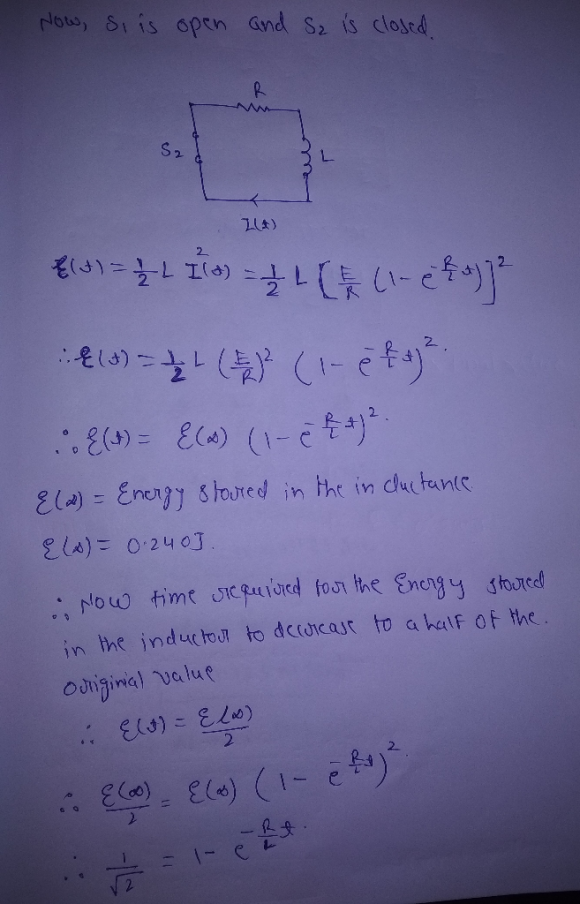 Now, S₁ is open and S₂ is closed.
R
S₂
L
I(t)
ℰ(t) = 1/2 L I²(t) = 1/2 L [E/R (1 - e^(-R/L t))]²
∴ ℰ(t) = 1/2 L (E/R)² (1 - e^(-R/L t))²
∴ ℰ(t) = ℰ(∞) (1 - e^(-R/L t))².
ℰ(∞) = Energy stored in the inductance
ℰ(∞) = 0.240J.
∴ Now time required for the Energy stored
in the inductor to decrease to a half of the.
original value
∴ ℰ(t) = ℰ(∞)/2
∴ ℰ(∞)/2 = ℰ(∞) (1 - e^(-R/L t))²
∴ 1/√2 = 1 - e^(-R/L t).